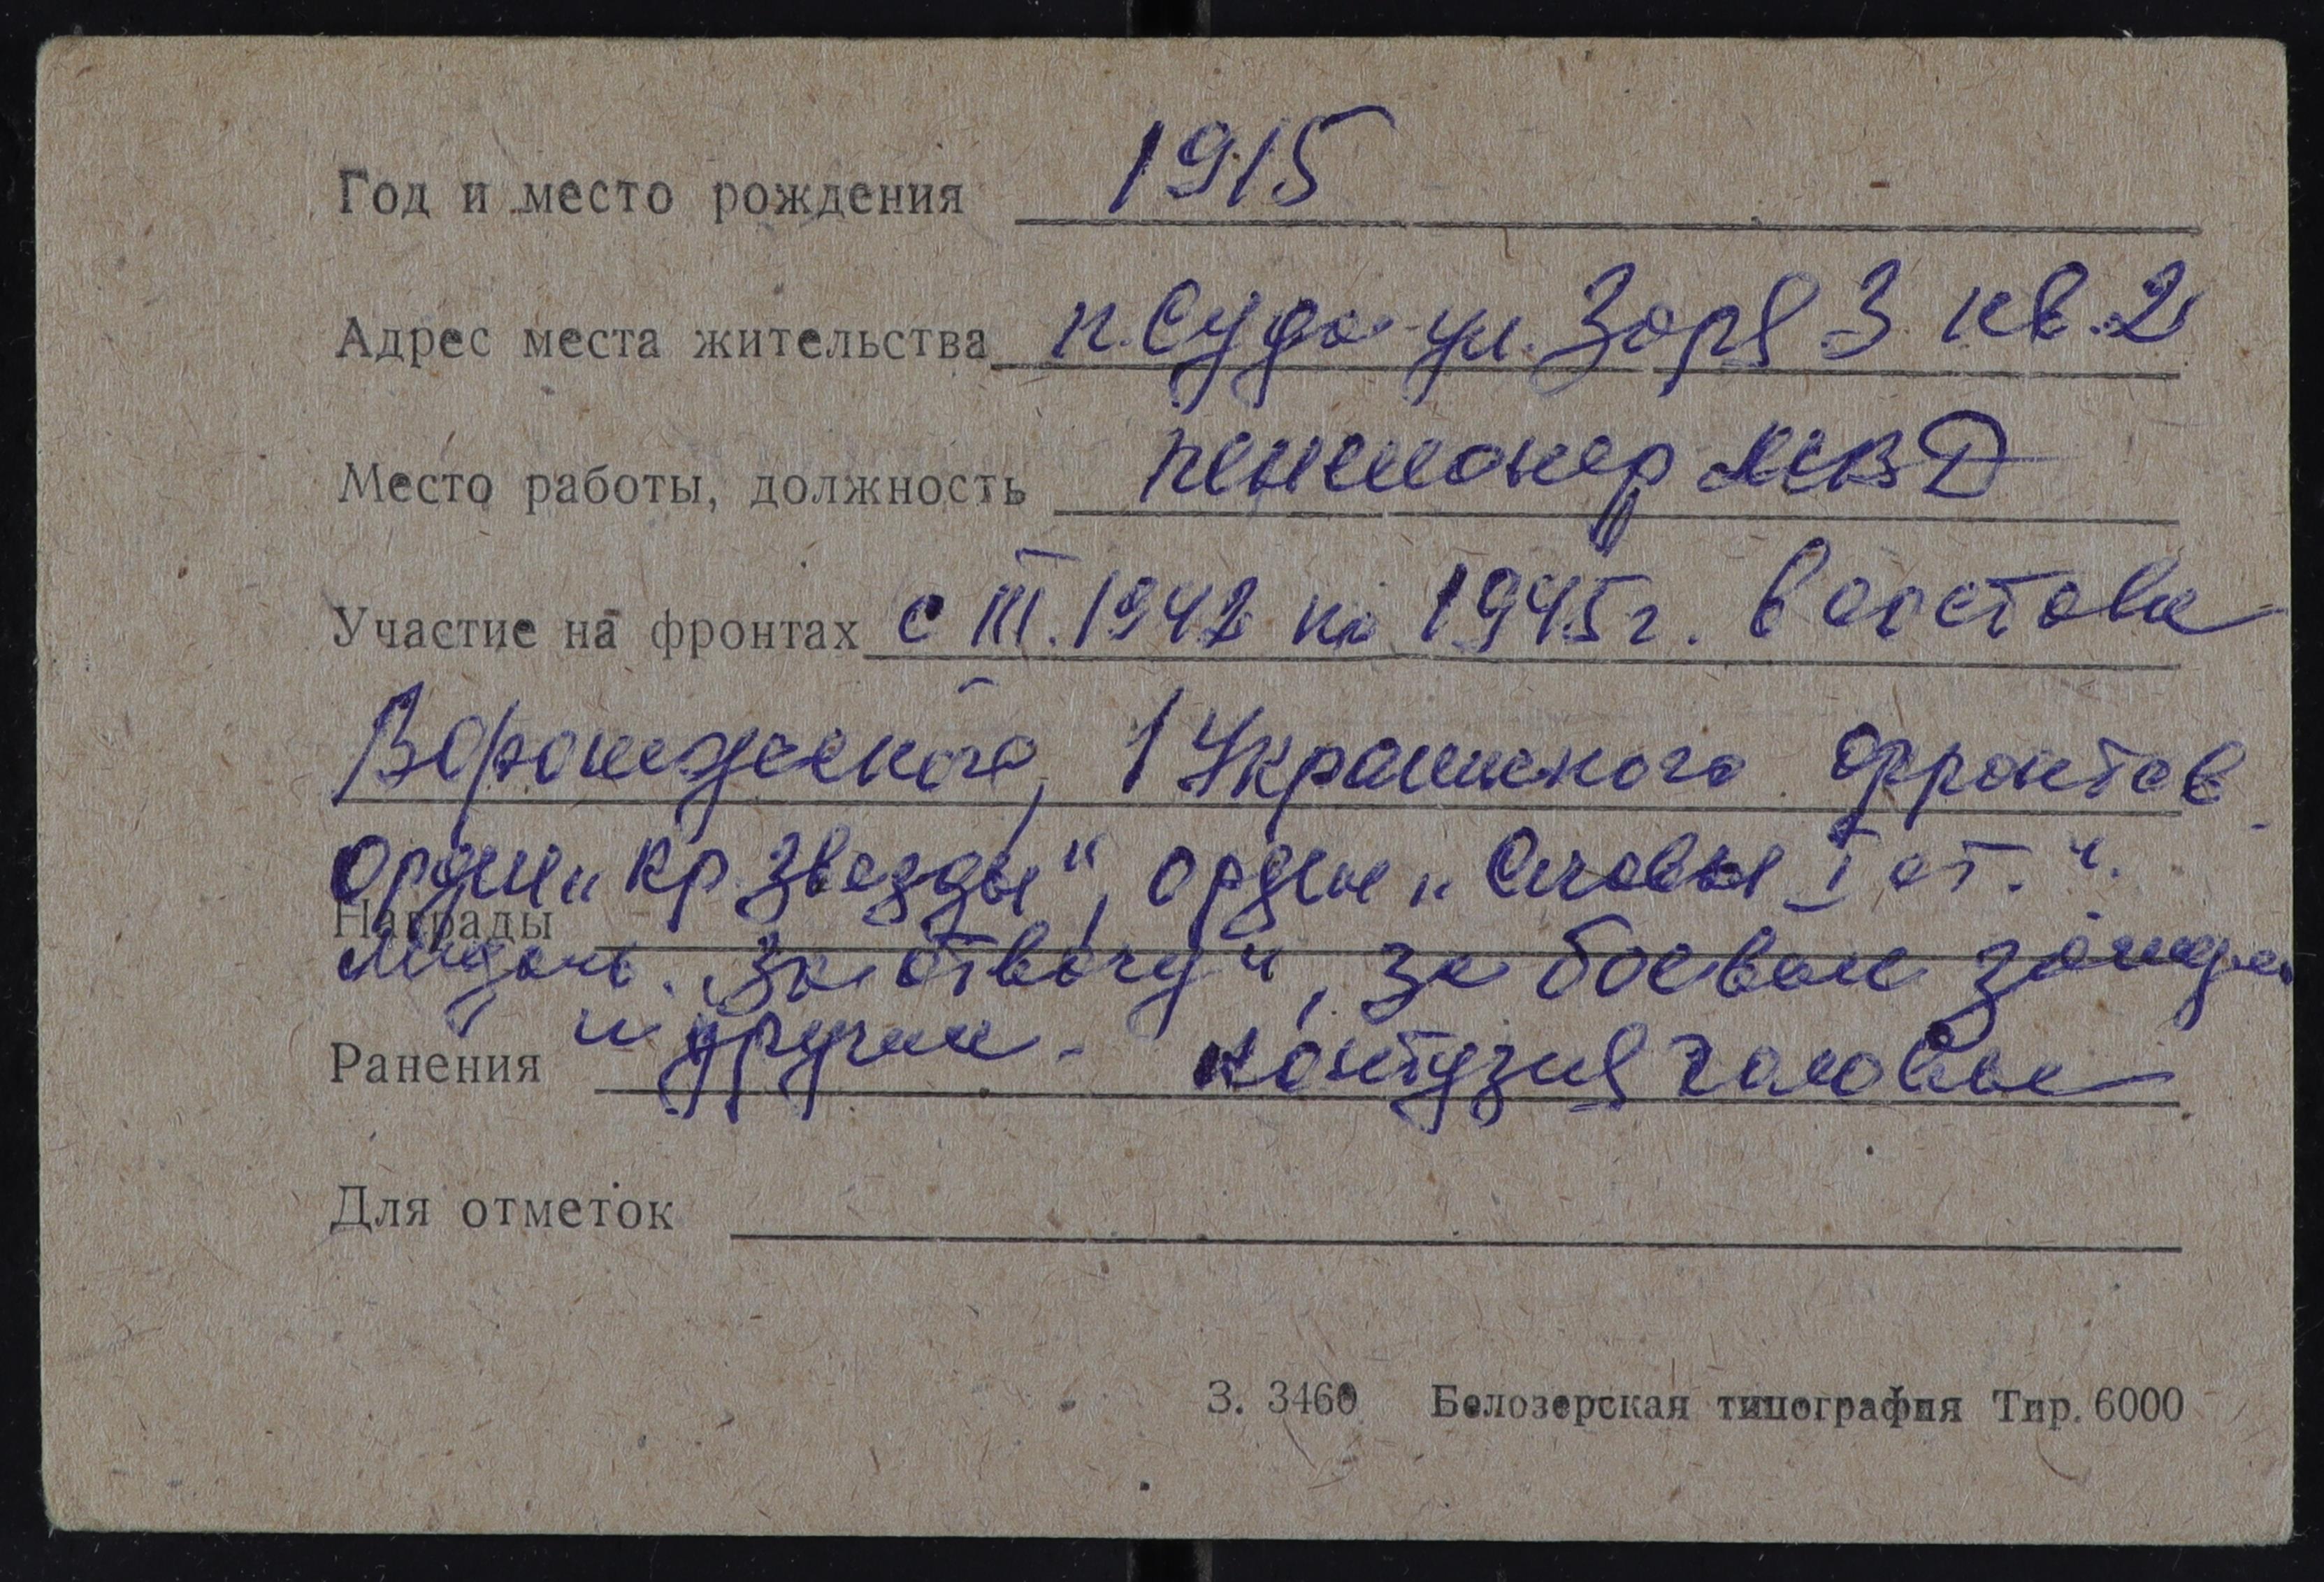 Год и место рождения 1915
Адрес места жительства п. Суда ул. Заря 3 кв. 2
Место работы, должность пенсионер МВД
Участие на фронтах с III. 1942 по 1945 г. в составе
Воронежского, 1 Украинского фронтов
Орден „Кр Звезды“, орден „Славы I ст.“.
Награды
Медаль „За отвагу“, за боевые
Ранения и другие - контузия головы
Для отметок
З. 3460 Белозерская типография Тир. 6000